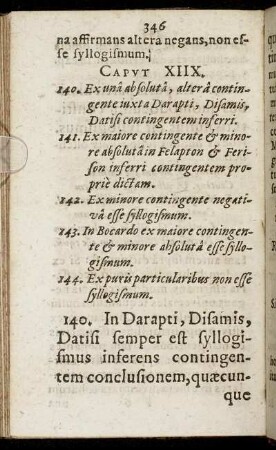 346
na affirmans altera negans, non es-
se syllogismum.
CAPVT XIIX.
140. Ex unâ absolutâ, alterâ contin-
gente iuxta Darapti, Disamis,
Datisi contingentem inferri.
141. Ex maiore contingente & mino-
re absolutâ in Felapton & Feri-
son inferri contingentem pro-
priè dictam.
142. Ex minore contingente negati-
vâ esse syllogismum.
143. In Bocardo ex maiore contingen-
te & minore absolutâ esse syllo-
gismum.
144. Ex puris particularibus non esse
syllogismum.
140. In Darapti, Disamis,
Datisi semper est syllogi-
smus inferens contingen-
tem conclusionem, quæcun-
que